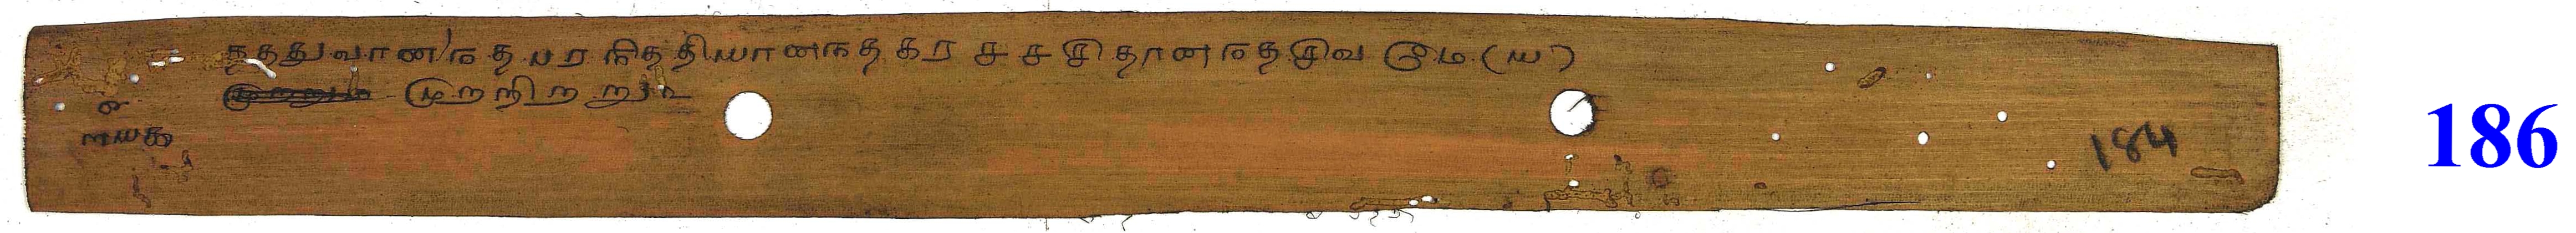 தததுவானநத பர நிததியானநத கர ச ச சிதானநத சிவ மே (ய)
முறறிறறு
184
186